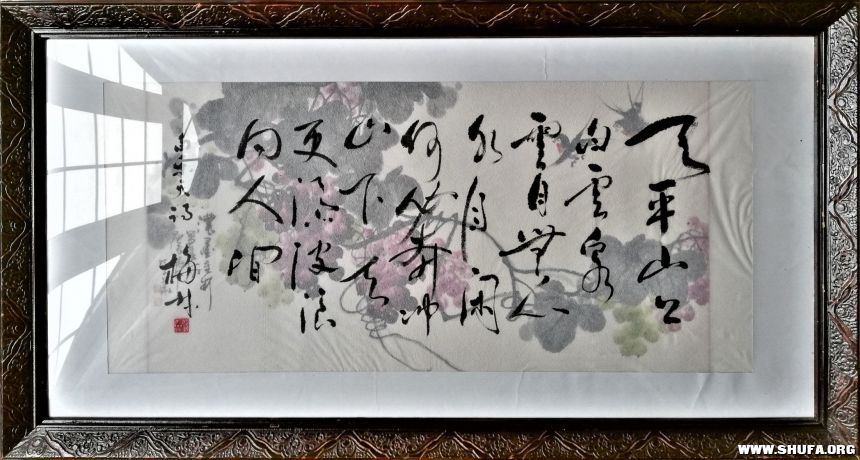 天平山上
白雲泉
雲自無心
水自闲
何必奔冲
山下去
更添波浪
向人间
诗
梅林
WWW.SHUFA.ORG